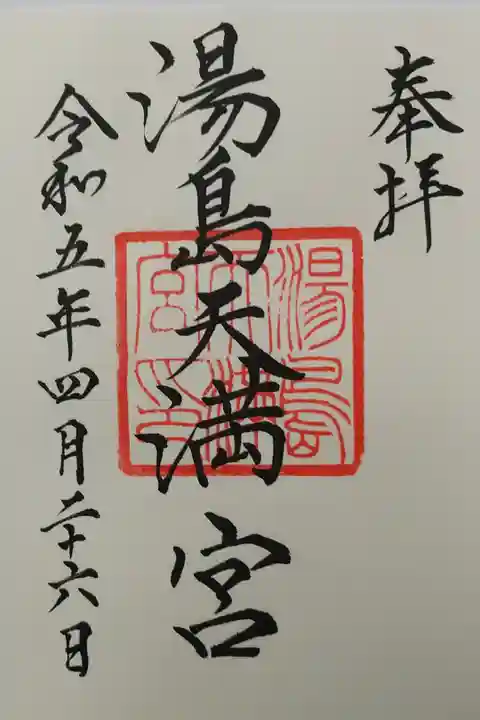 奉拝
湯島天満宮
湯島天満宮印
令和五年四月二十六日